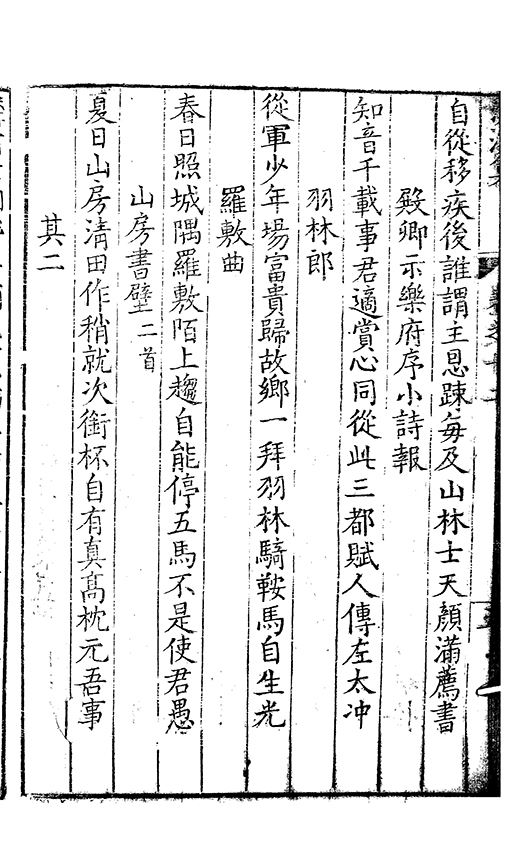 自從移疾後誰謂主恩踈每及山林士天顏滿薦書
殿卿示樂府序小詩報
知音千載事君適賞心同從此三都賦人傳左太冲
羽林郎
從軍少年場富貴歸故鄉一拜羽林騎鞍馬自生光
羅敷曲
春日照城隅羅敷陌上趨自能停五馬不是使君愚
山房書壁二首
夏日山房清田作稍就次銜杯自有真高枕元吾事
其二